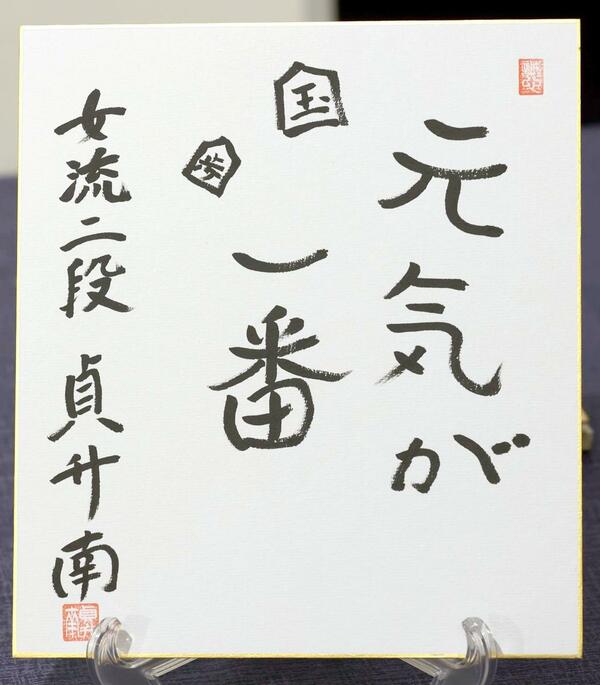 元気が
玉
歩
一番
女流二段 貞升南